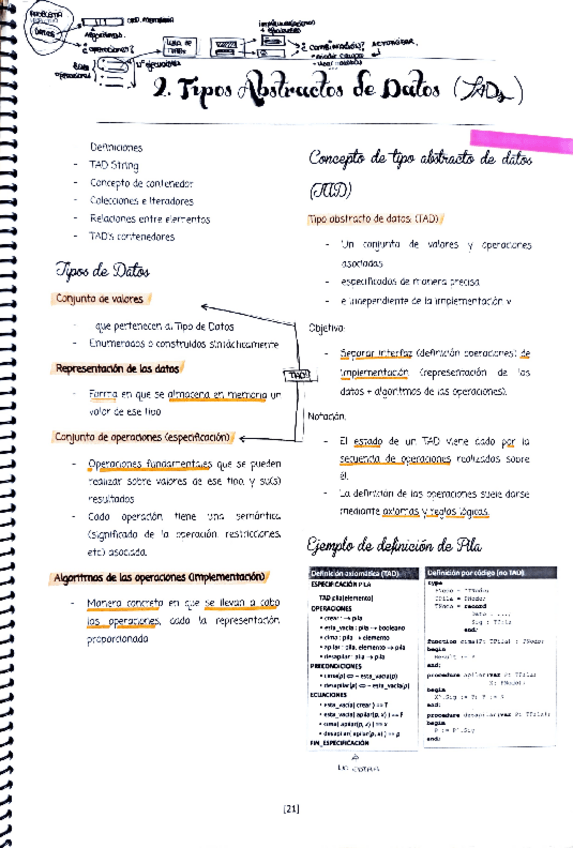 PROBLEMA
DATOS
Algoritmos.
¿operaciones?
operaciones
¿Combinación?
2. Tipos Abstractos de Datos (TADs)
Definiciones
- TAD String
- Concepto de contenedor
- Colecciones e Iteradores
- Relaciones entre elementos
- TAD's contenedores
Tipos de Datos
Conjunto de valores
- que pertenecen al Tipo de Datos
- Enumerados o construidos sintácticamente
Representación de los datos
- Forma en que se almacena en memoria un
valor de ese tipo
Conjunto de operaciones (especificación)
- Operaciones fundamentales que se pueden
realizar sobre valores de ese tipo, y su(s)
resultados
- Cada operación tiene una semántica
(significado de la operación, restricciones,
etc) asociada.
Algoritmos de las operaciones (implementación)
- Manera concreta en que se llevan a cabo
las operaciones, dada la representación
proporcionada
TAD
Concepto de tipo abstracto de datos
(TAD)
Tipo abstracto de datos (TAD)
- Un conjunto de valores y operaciones
asociadas
- especificadas de manera precisa
- e independiente de la implementación
Objetivo:
- Separar interfaz (definición operaciones) de
implementación (representación de los
datos + algoritmos de las operaciones).
Notación:
- El estado de un TAD viene dado por la
secuencia de operaciones realizadas sobre
él.
- La definición de las operaciones suele darse
mediante axiomas y reglas lógicas.
Ejemplo de definición de Pila
Definición axiomática (TAD)
ESPECIFICACIÓN PILA
TAD pila[elemento]
OPERACIONES
• crear : → pila
• esta_vacia : pila → booleano
• cima : pila → elemento
• apilar : pila, elemento → pila
• desapilar : pila → pila
PRECONDICIONES
• cima(p) ⇔ ¬ esta_vacia(p)
• desapilar(p) ⇔ ¬ esta_vacia(p)
ECUACIONES
• esta_vacia( crear ) == T
• esta_vacia( apilar(p, x) ) == F
• cima( apilar(p, x) ) == x
• desapilar( apilar(p, x) ) == p
FIN_ESPECIFICACIÓN
Definición por código (no TAD)
type
PNodo = ^TNodo;
TPila = PNodo;
TNodo = record
Dato : ...;
Sig : TPila
end;
function cima(P: TPila) : TNodo;
begin
Result := P
end;
procedure apilar(var P: TPila;
X: PNodo);
begin
X^.Sig := P; P := X
end;
procedure desapilar(var P: TPila);
begin
P := P^.Sig
end;
[21]